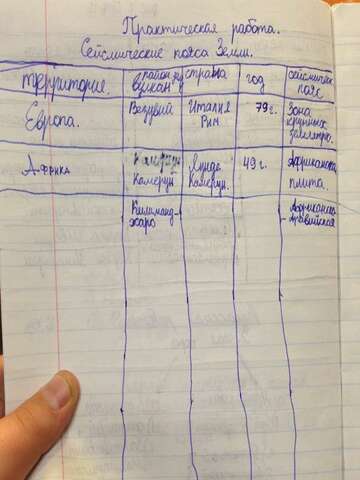 Практическая работа.
Сейсмические пояса Земли.
территория. район яз вулкан страна год сейсмичес пояс
Европа. Везувий Италия Рим. 79 г. Зона крупных
Африка Камерун Камерун. 49 г. Африканска плита.
Килиманд-жаро Африканско Аравийская